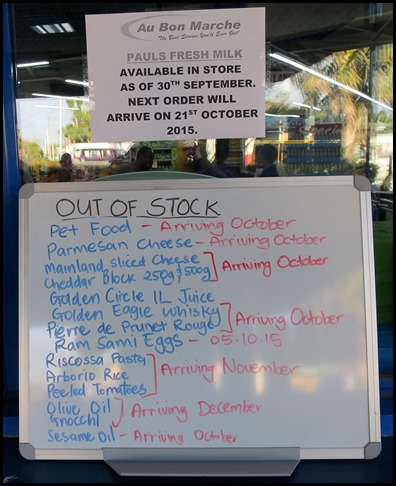 Au Bon Marche
The Best Service You'll Ever Get!
PAULS FRESH MILK
AVAILABLE IN STORE
AS OF 30TH SEPTEMBER.
NEXT ORDER WILL
ARRIVE ON 21ST OCTOBER
2015.
OUT OF STOCK
Pet Food - Arriving October
Parmesan Cheese - Arriving October
Mainland sliced Cheese
Cheddar Block 250g & 500g ] Arriving October
Golden Circle 1L Juice
Golden Eagle Whisky
Pierre de Prunet Rouge ] Arriving October
Ram Sami Eggs - 05.10.15
Riscossa Pasta
Arborio Rice ] Arriving November
Peeled Tomatoes
Olive Oil ] Arriving December
Gnocchi
Sesame Oil - Arriving October